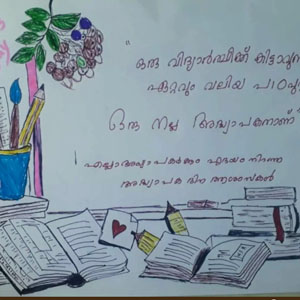 "ഒരു വിദ്യാർത്ഥിക്ക് കിട്ടാവുന്ന
ഏറ്റവും വലിയ പാഠപു
ഒരു നല്ല അദ്ധ്യാപകനാണ്"
എല്ലാ അദ്ധ്യാപകർക്കും ഹൃദയം നിറഞ്ഞ
അദ്ധ്യാപക ദിന ആശംസകൾ